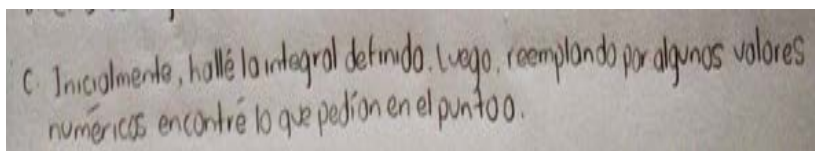 C. Inicialmente, hallé la integral definida. Luego, reemplando por algunos valores
numéricos encontré lo que pedían en el punto a.